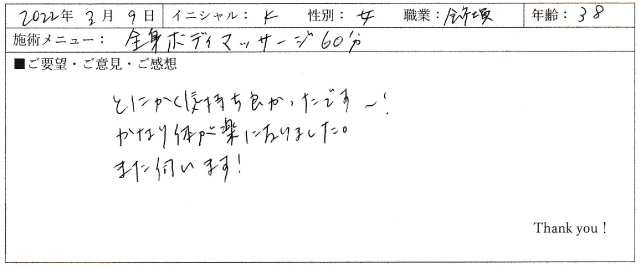 2022年 3月 9日 イニシャル: K 性別: 女 職業: 年齢: 38
施術メニュー: 全身ボディマッサージ60分
■ご要望・ご意見・ご感想
とにかく気持ち良かったです〜!
かなり体が楽になりました。
また伺います!
Thank you !